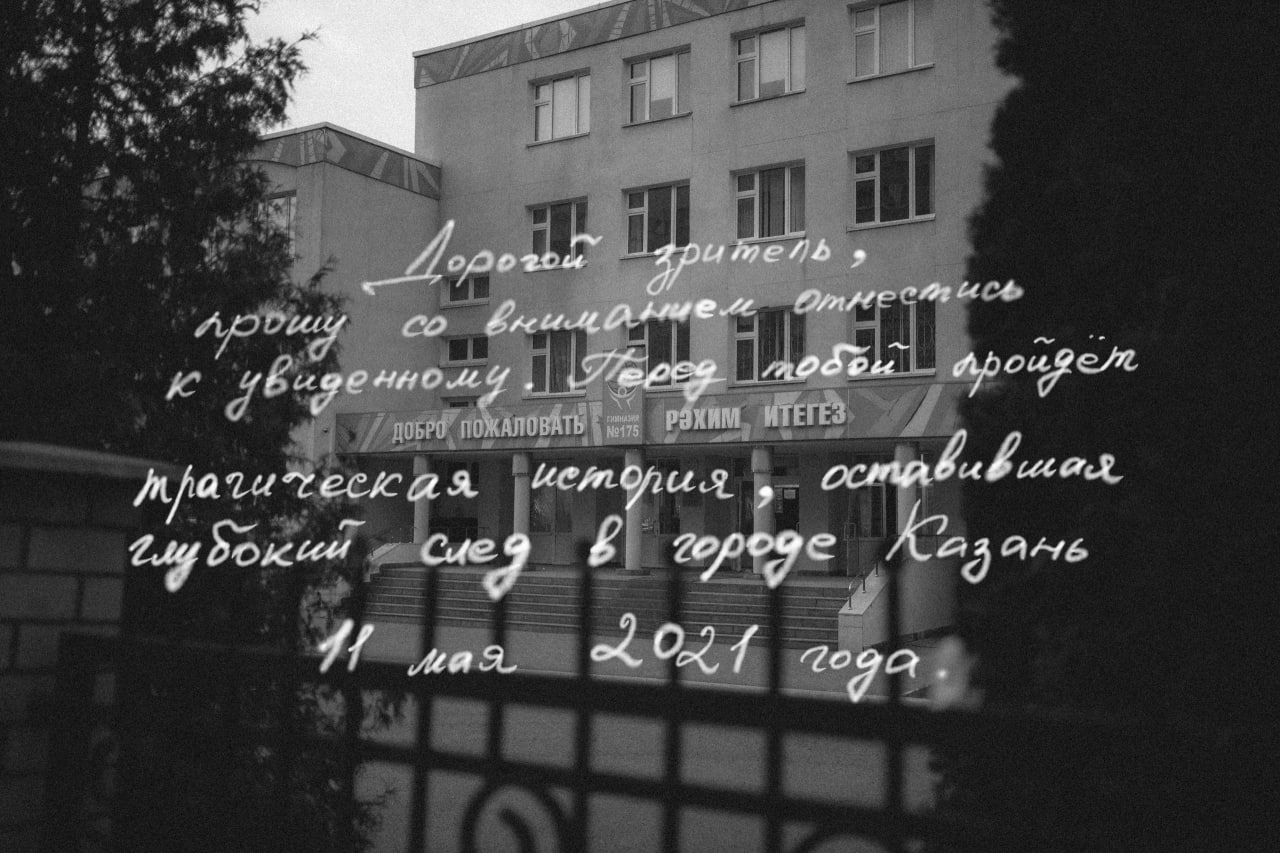 Дорогой зритель,
прошу со вниманием отнестись
к увиденному. Перед тобой пройдёт
ДОБРО ПОЖАЛОВАТЬ
ГИМНАЗИЯ
№175
РӘХИМ ИТЕГЕЗ
трагическая история, оставившая
глубокий след в городе Казань
11 мая 2021 года.